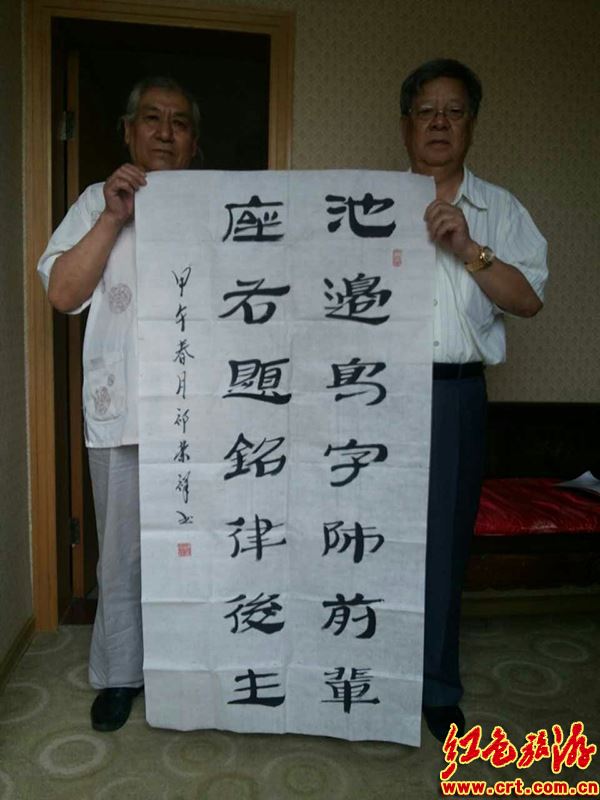 池邊寫字師前輩
座右題銘律後主
甲午春月祁荣祥书
红色旅游
www.crt.com.cn